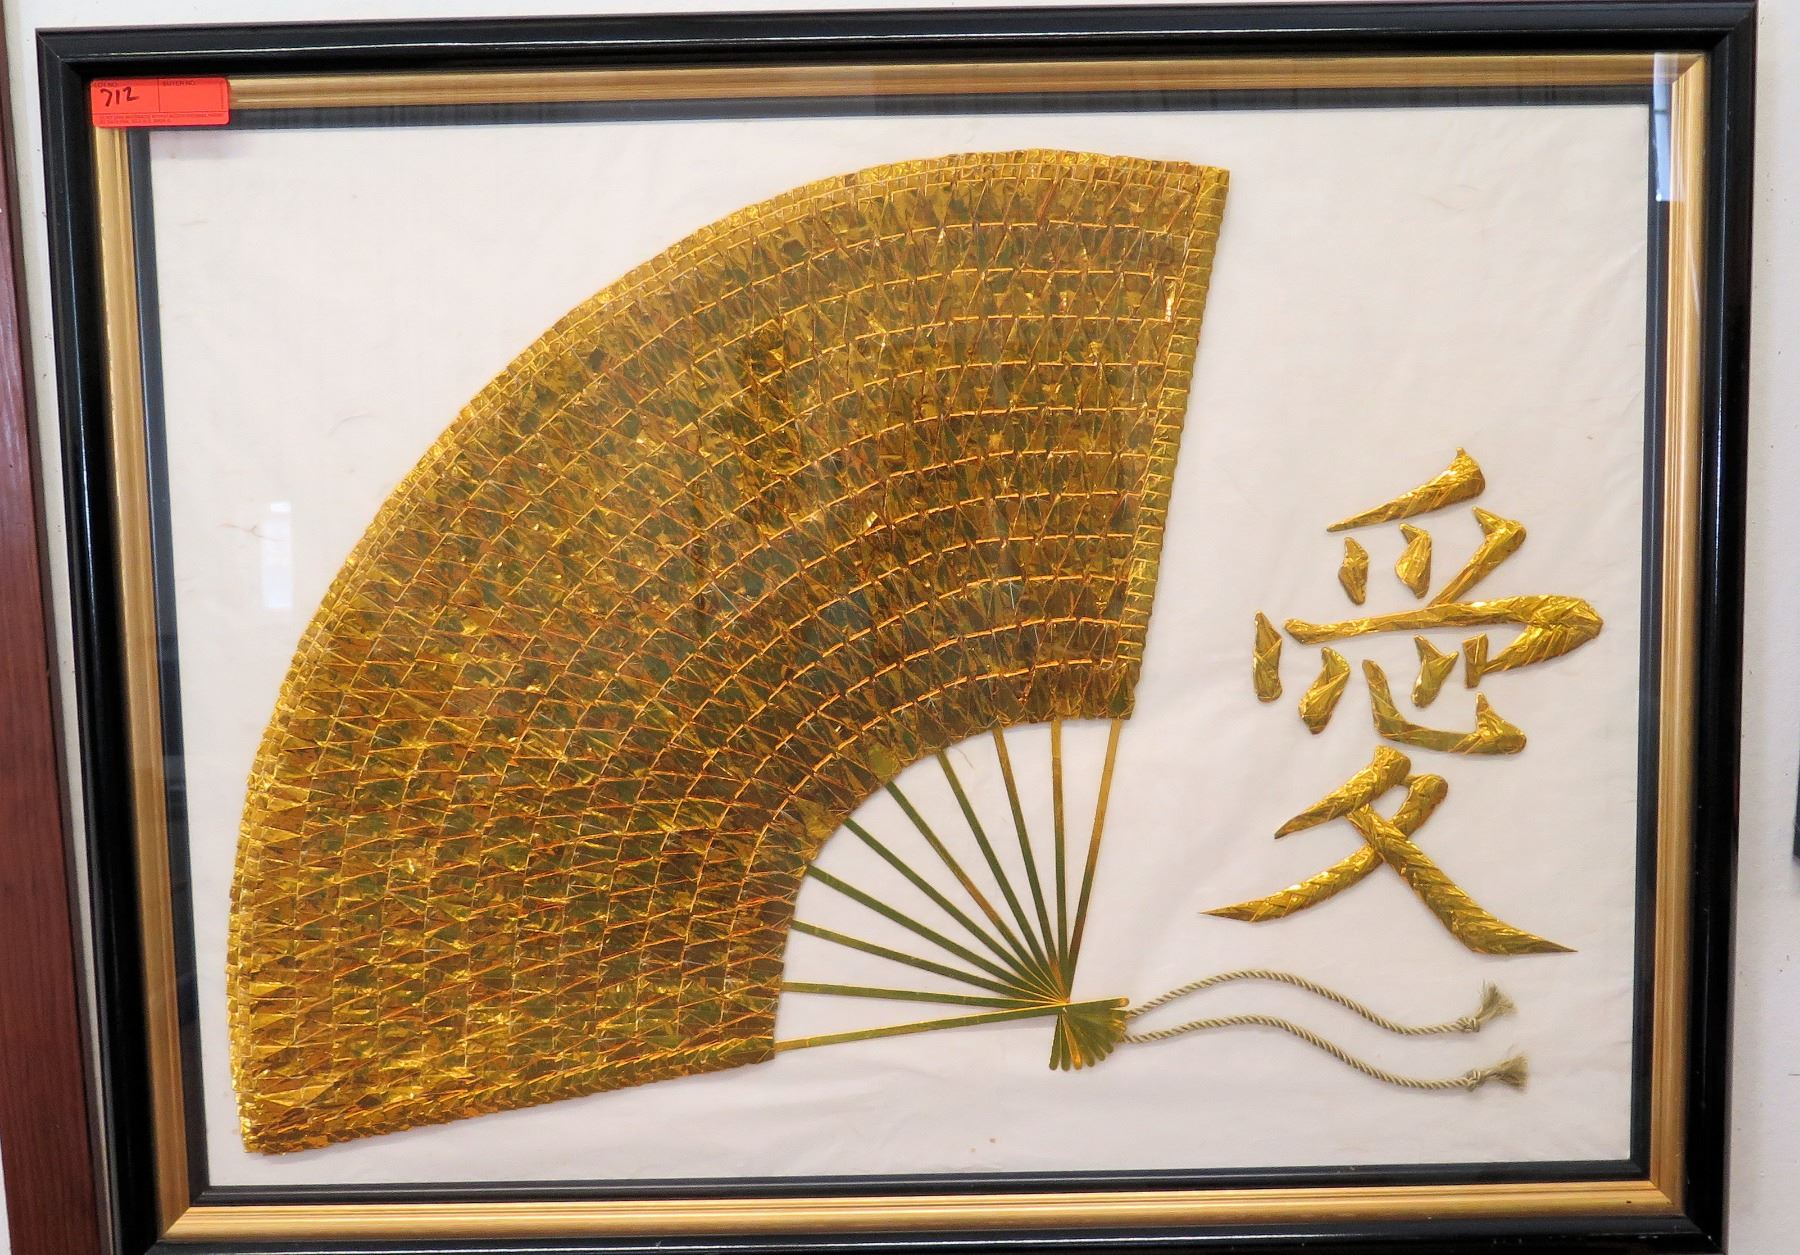 LOT NO. BUYER NO.
712
愛